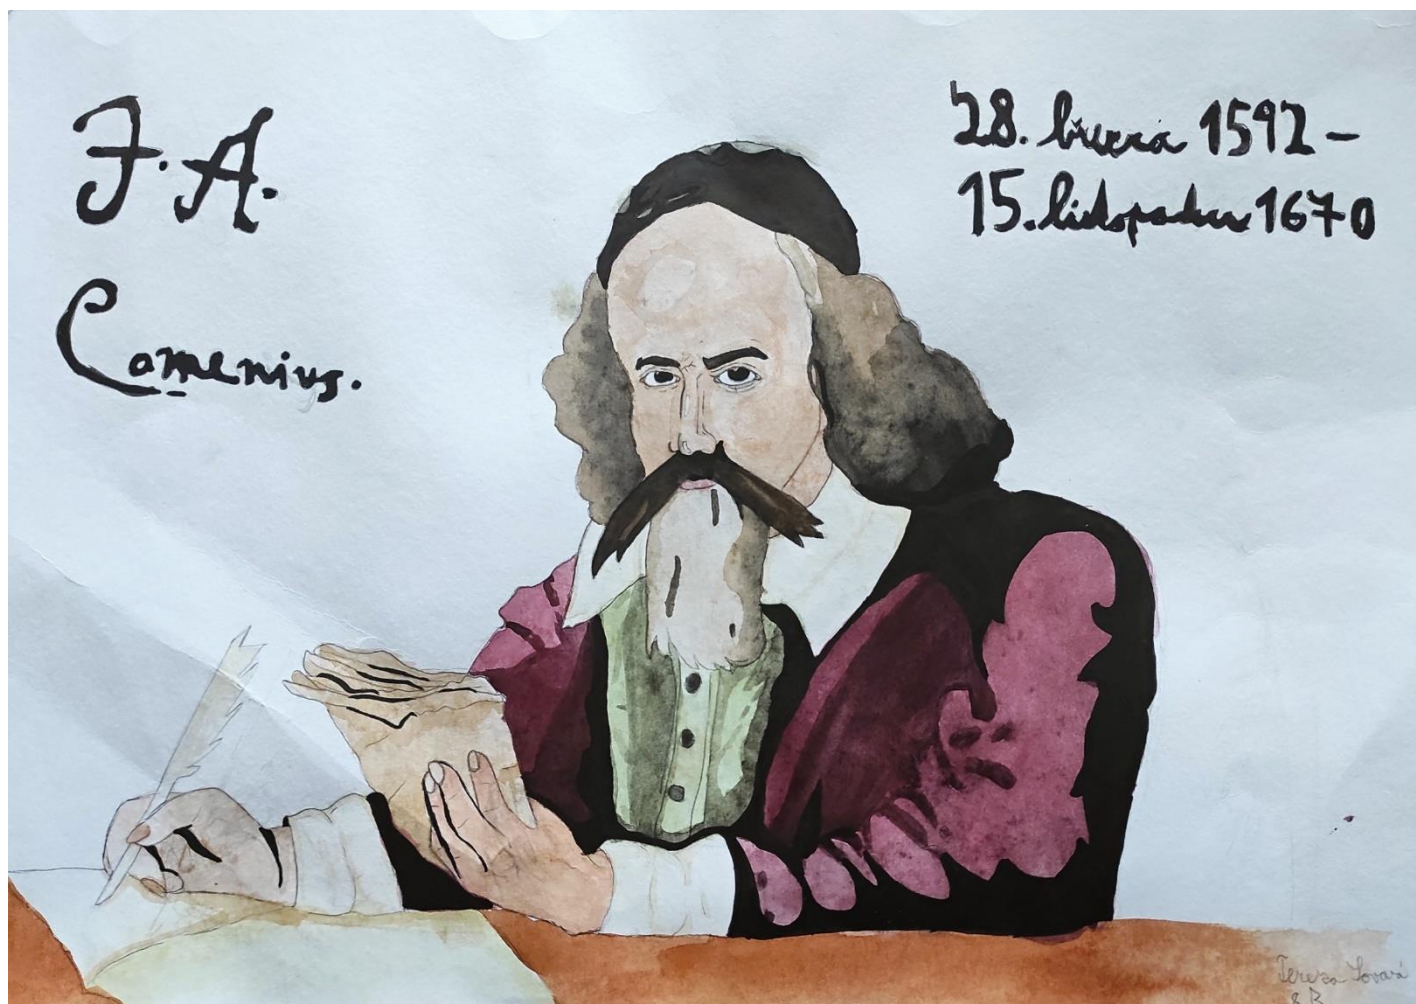 J. A.
Comenius.
28. března 1592 –
15. listopadu 1670
Tereza
8.B